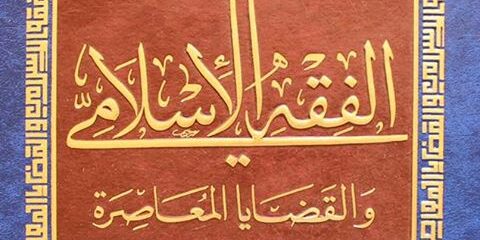 الفِقْه الإِسْلَامِيّ
وَالقَضَايَا المُعَاصِرَة